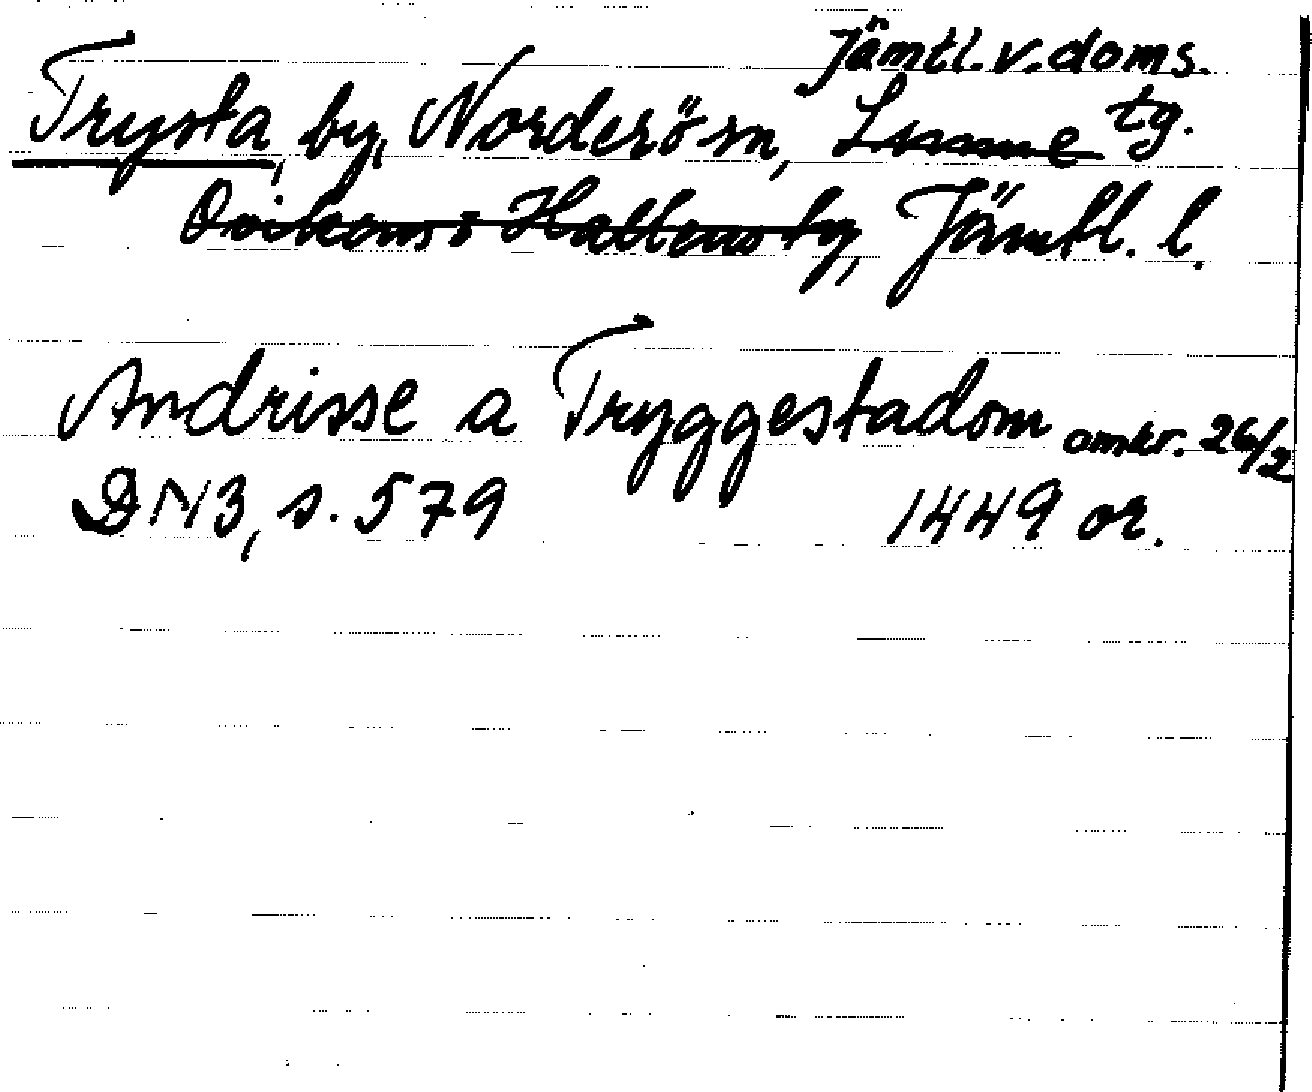 Jämtl. v. doms.
Trysta, by, Norderö sn, Sunne tg.
Ovikens o Hallens tg, Jämtl. l.
Andrisse a Tryggestadom omkr. 26/2
DN 3, s. 579 1449 or.